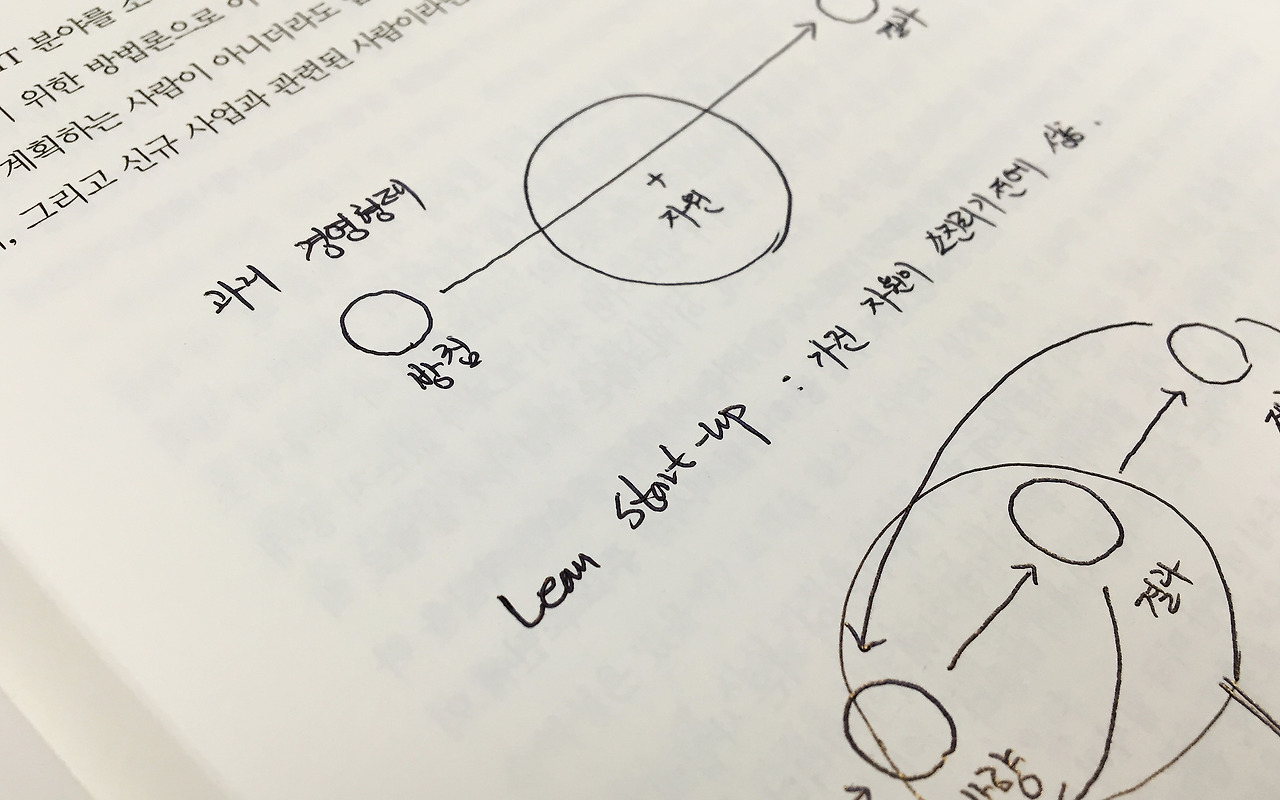 분야를
위한 방법론으로
계획하는 사람이 아니더라도
그리고 신규 사업과 관련된 사람이라면
결과
+
자원
과거 경영형태
방침
Lean Start-up : 가진 자원이 소진되기전에
결과